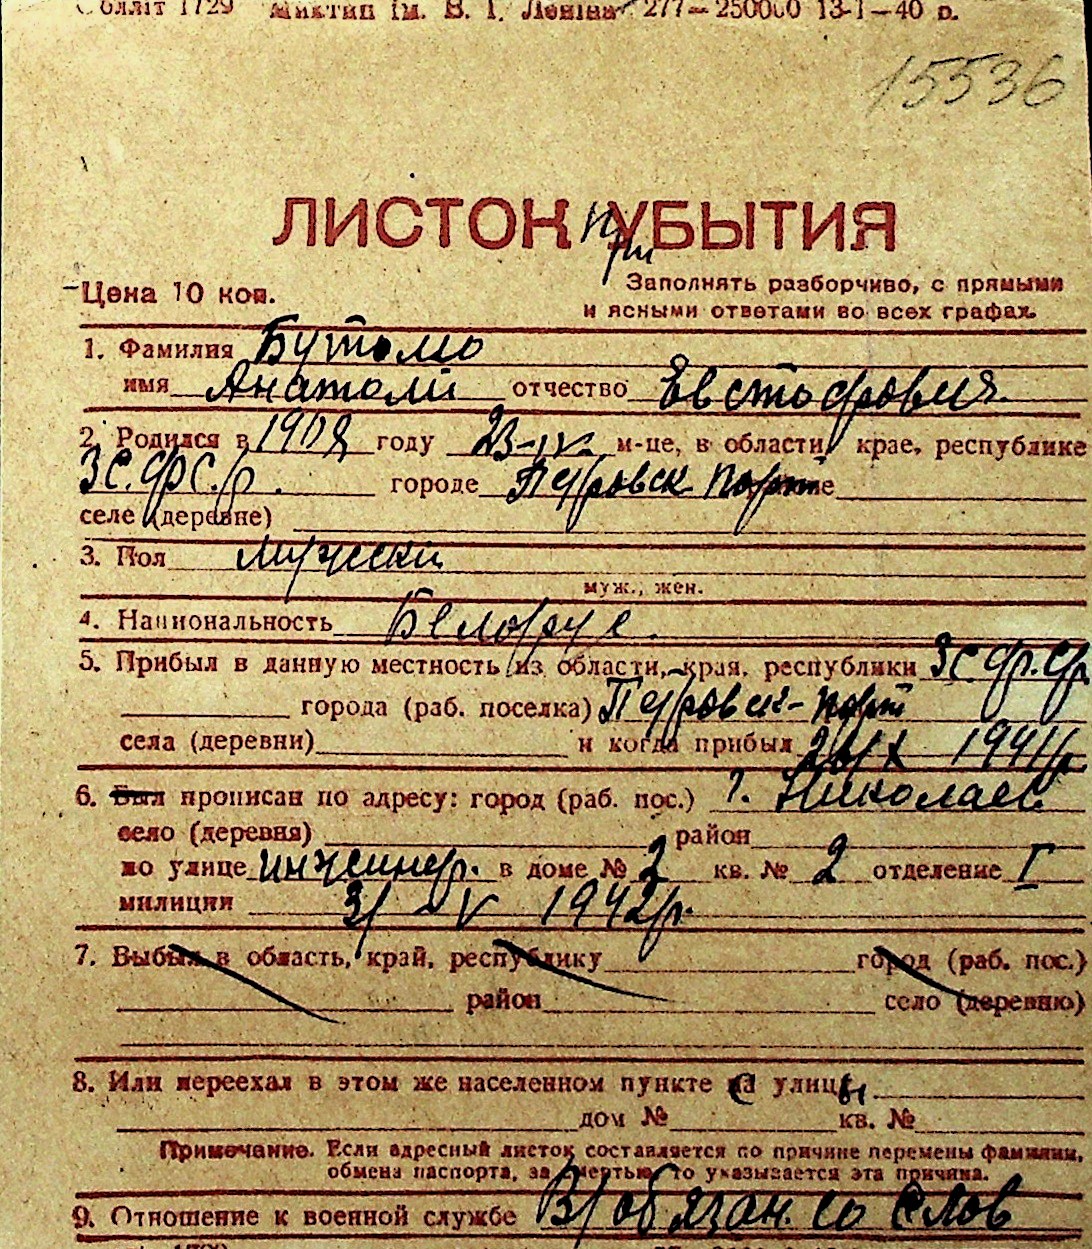 Міктип Ім. В. І. Леніна 277—250000 13-1—40 р.
15536
ЛИСТОК УБЫТИЯ
При
Цена 10 коп.
Заполнять разборчиво, с прямыми
и ясными ответами во всех графах.
1. Фамилия Бутомо
имя Анатоли отчество Евстафович
2. Родился в 1908 году 23-IV м-це, в области, крае, республике
ЗС.ФС.р. городе Петровск Порт
селе (деревне)
3. Пол мужски
муж., жен.
4. Национальность Белорус.
5. Прибыл в данную местность из области, края, республики ЗСФ.Ср
города (раб. поселка) Петровск-порт
села (деревни) и когда прибыл 1941 г.
6. Был прописан по адресу: город (раб. пос.) г. Николаев
село (деревня) район
по улице инженер. в доме № 2 кв. № 2 отделение I
милиции 3/-V 1942 г.
7. Выбыл в область, край, республику город (раб. пос.)
район село (деревню)
8. Или переехал в этом же населенном пункте с улицы
дом № кв. №
Примечание. Если адресный листок составляется по причине перемены фамилии,
обмена паспорта, за смертью, то указывается эта причина.
9. Отношение к военной службе В/обязан. со слов